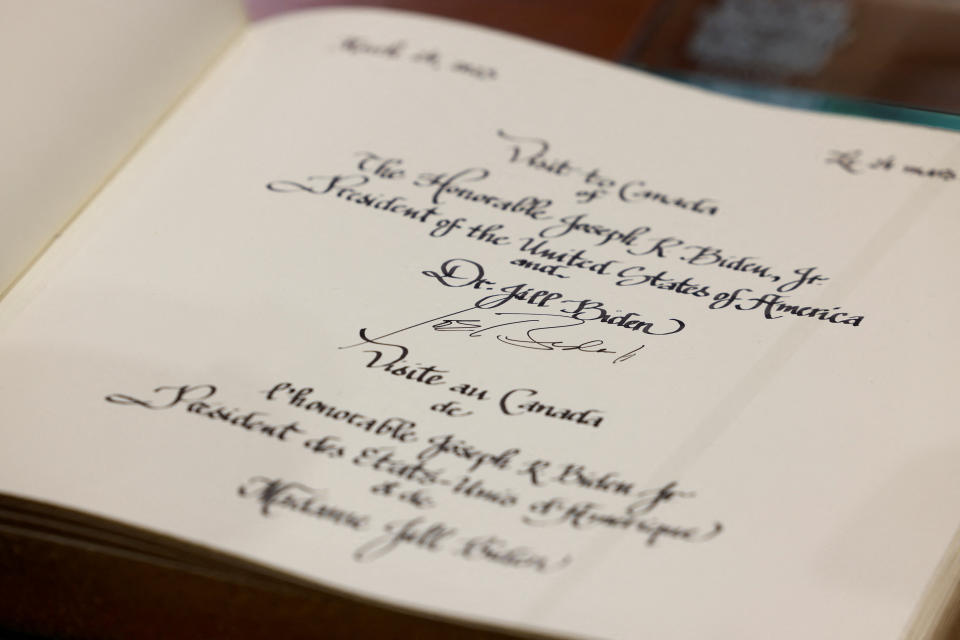 March 24, 2023
Le 24 mars
Visit to Canada
of
The Honorable Joseph R. Biden, Jr.
President of the United States of America
and
Dr. Jill Biden
Visite au Canada
de
l'honorable Joseph R Biden Jr
Président des États-Unis d'Amérique
et de
Madame Jill Biden